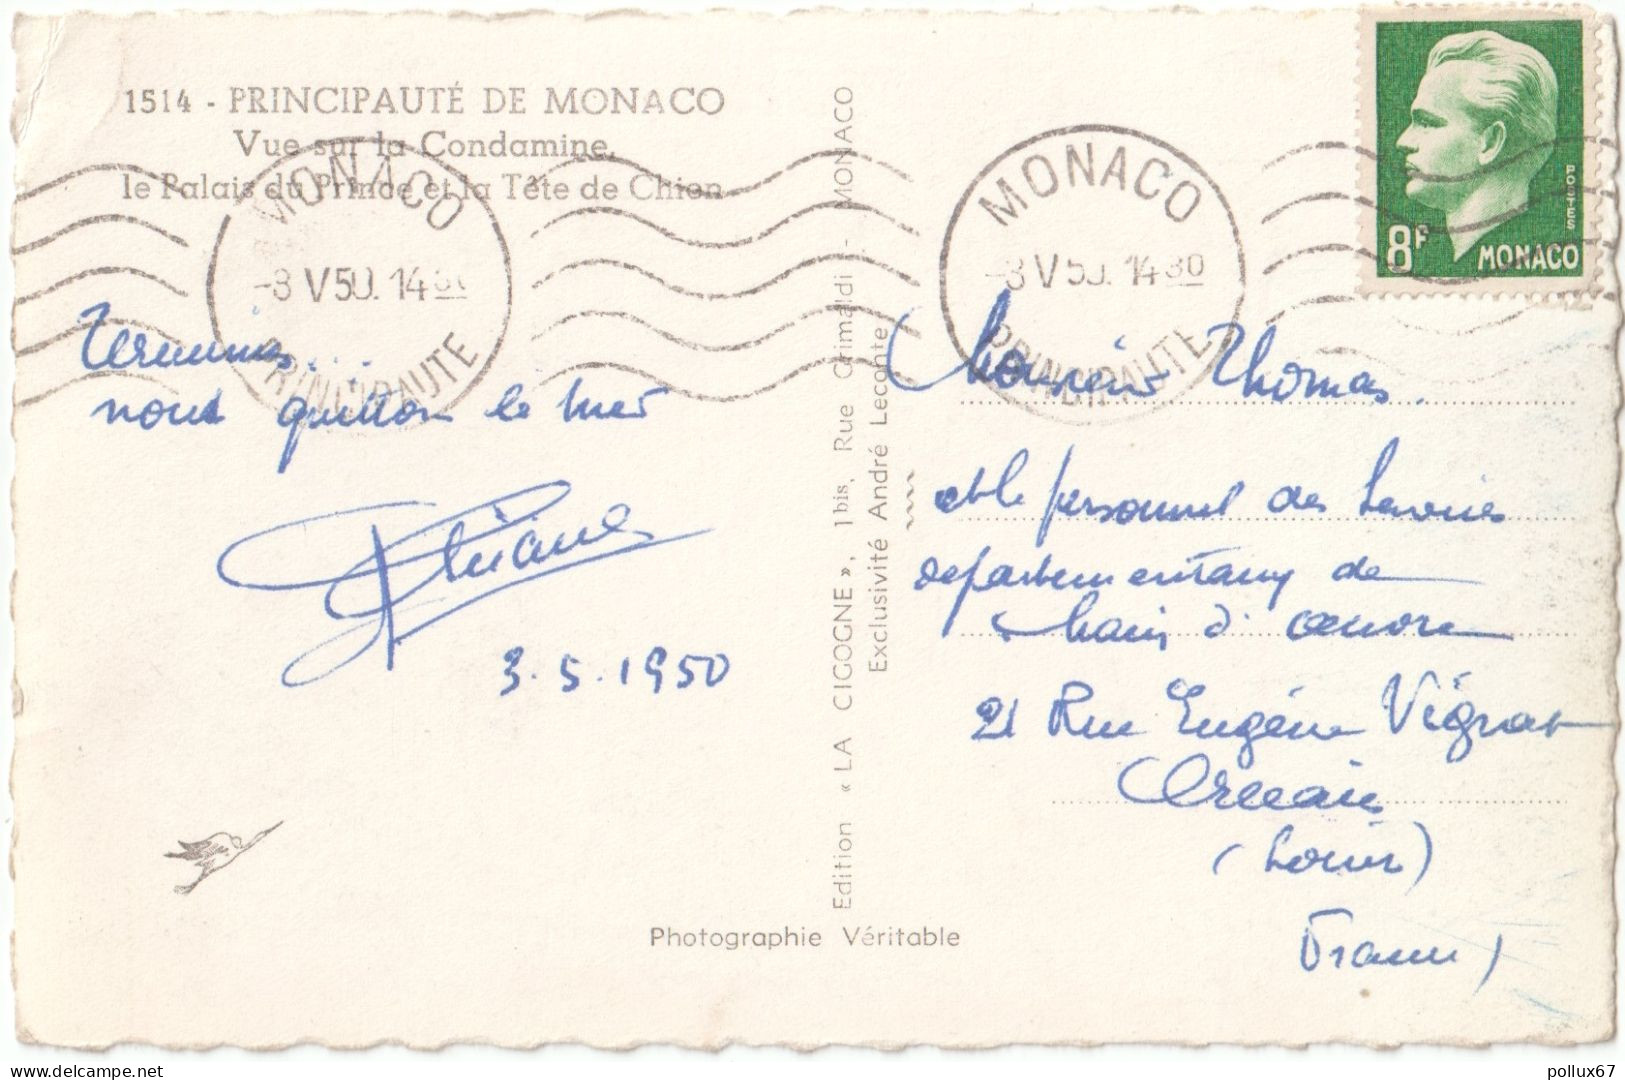 1514 - PRINCIPAUTÉ DE MONACO
Vue sur la Condamine,
le Palais du Prince et la Tête de Chien
MONACO
-3 V 50. 14 30
PRINCIPAUTE
MONACO
-3 V 50. 14 30
PRINCIPAUTE
8F
POSTES
MONACO
Terminus...
nous quittons la mer
3.5.1950
Edition « LA CIGOGNE », 1 bis, Rue Grimaldi - MONACO
Exclusivité André Leconte
Monsieur Thomas
et le personnel des Services
departementaux de
Main d'oeuvre
21 Rue Eugène Vignat
Orléans
(Loiret)
France
Photographie Véritable
delcampe.net
pollux67